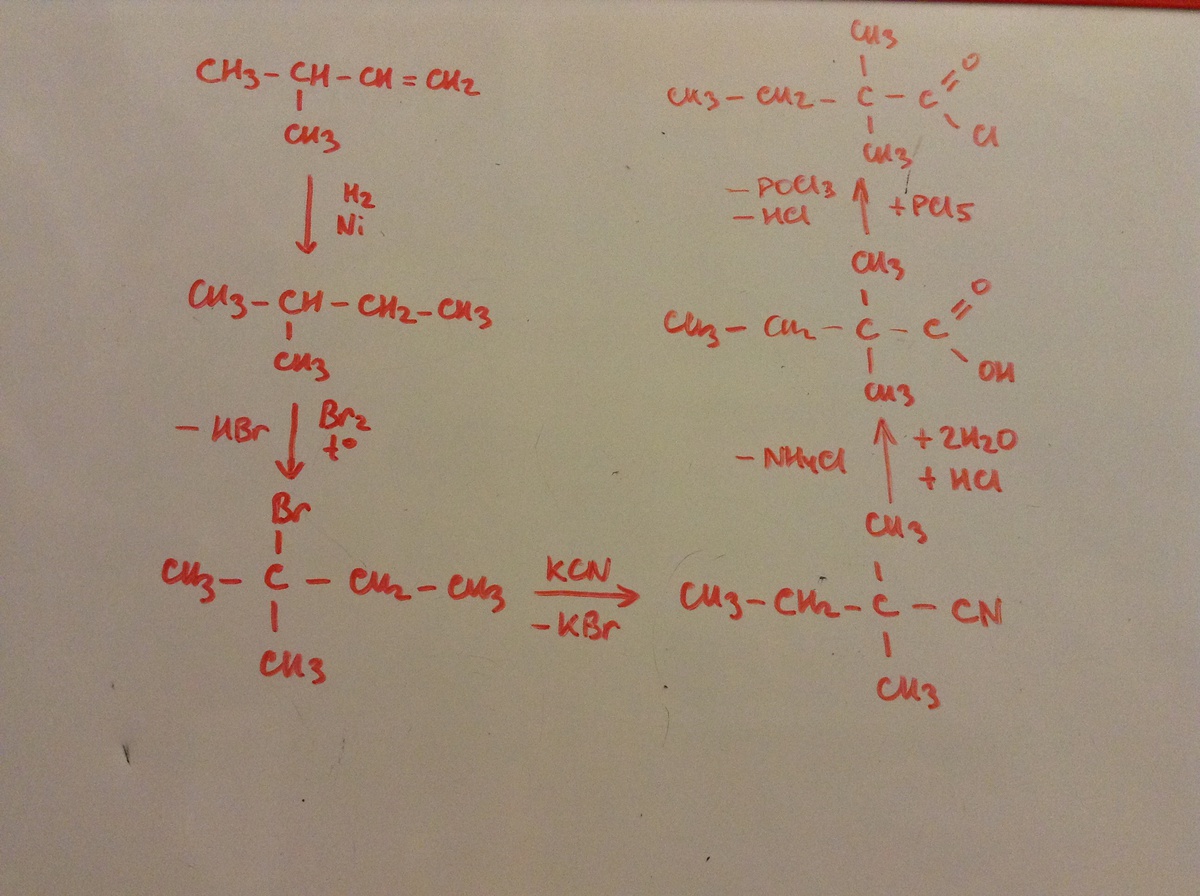 CH3 - CH - CH = CH2
CH3
H2
Ni
CH3 - CH - CH2 - CH3
CH3
- HBr
Br2
t°
Br
CH3 - C - CH2 - CH3
CH3
KCN
- KBr
CH3
CH3 - CH2 - C - CN
CH3
- NH4Cl
+ 2H2O
+ HCl
CH3
O
CH3 - CH2 - C - C
OH
CH3
- POCl3
- HCl
+ PCl5
CH3
O
CH3 - CH2 - C - C
Cl
CH3